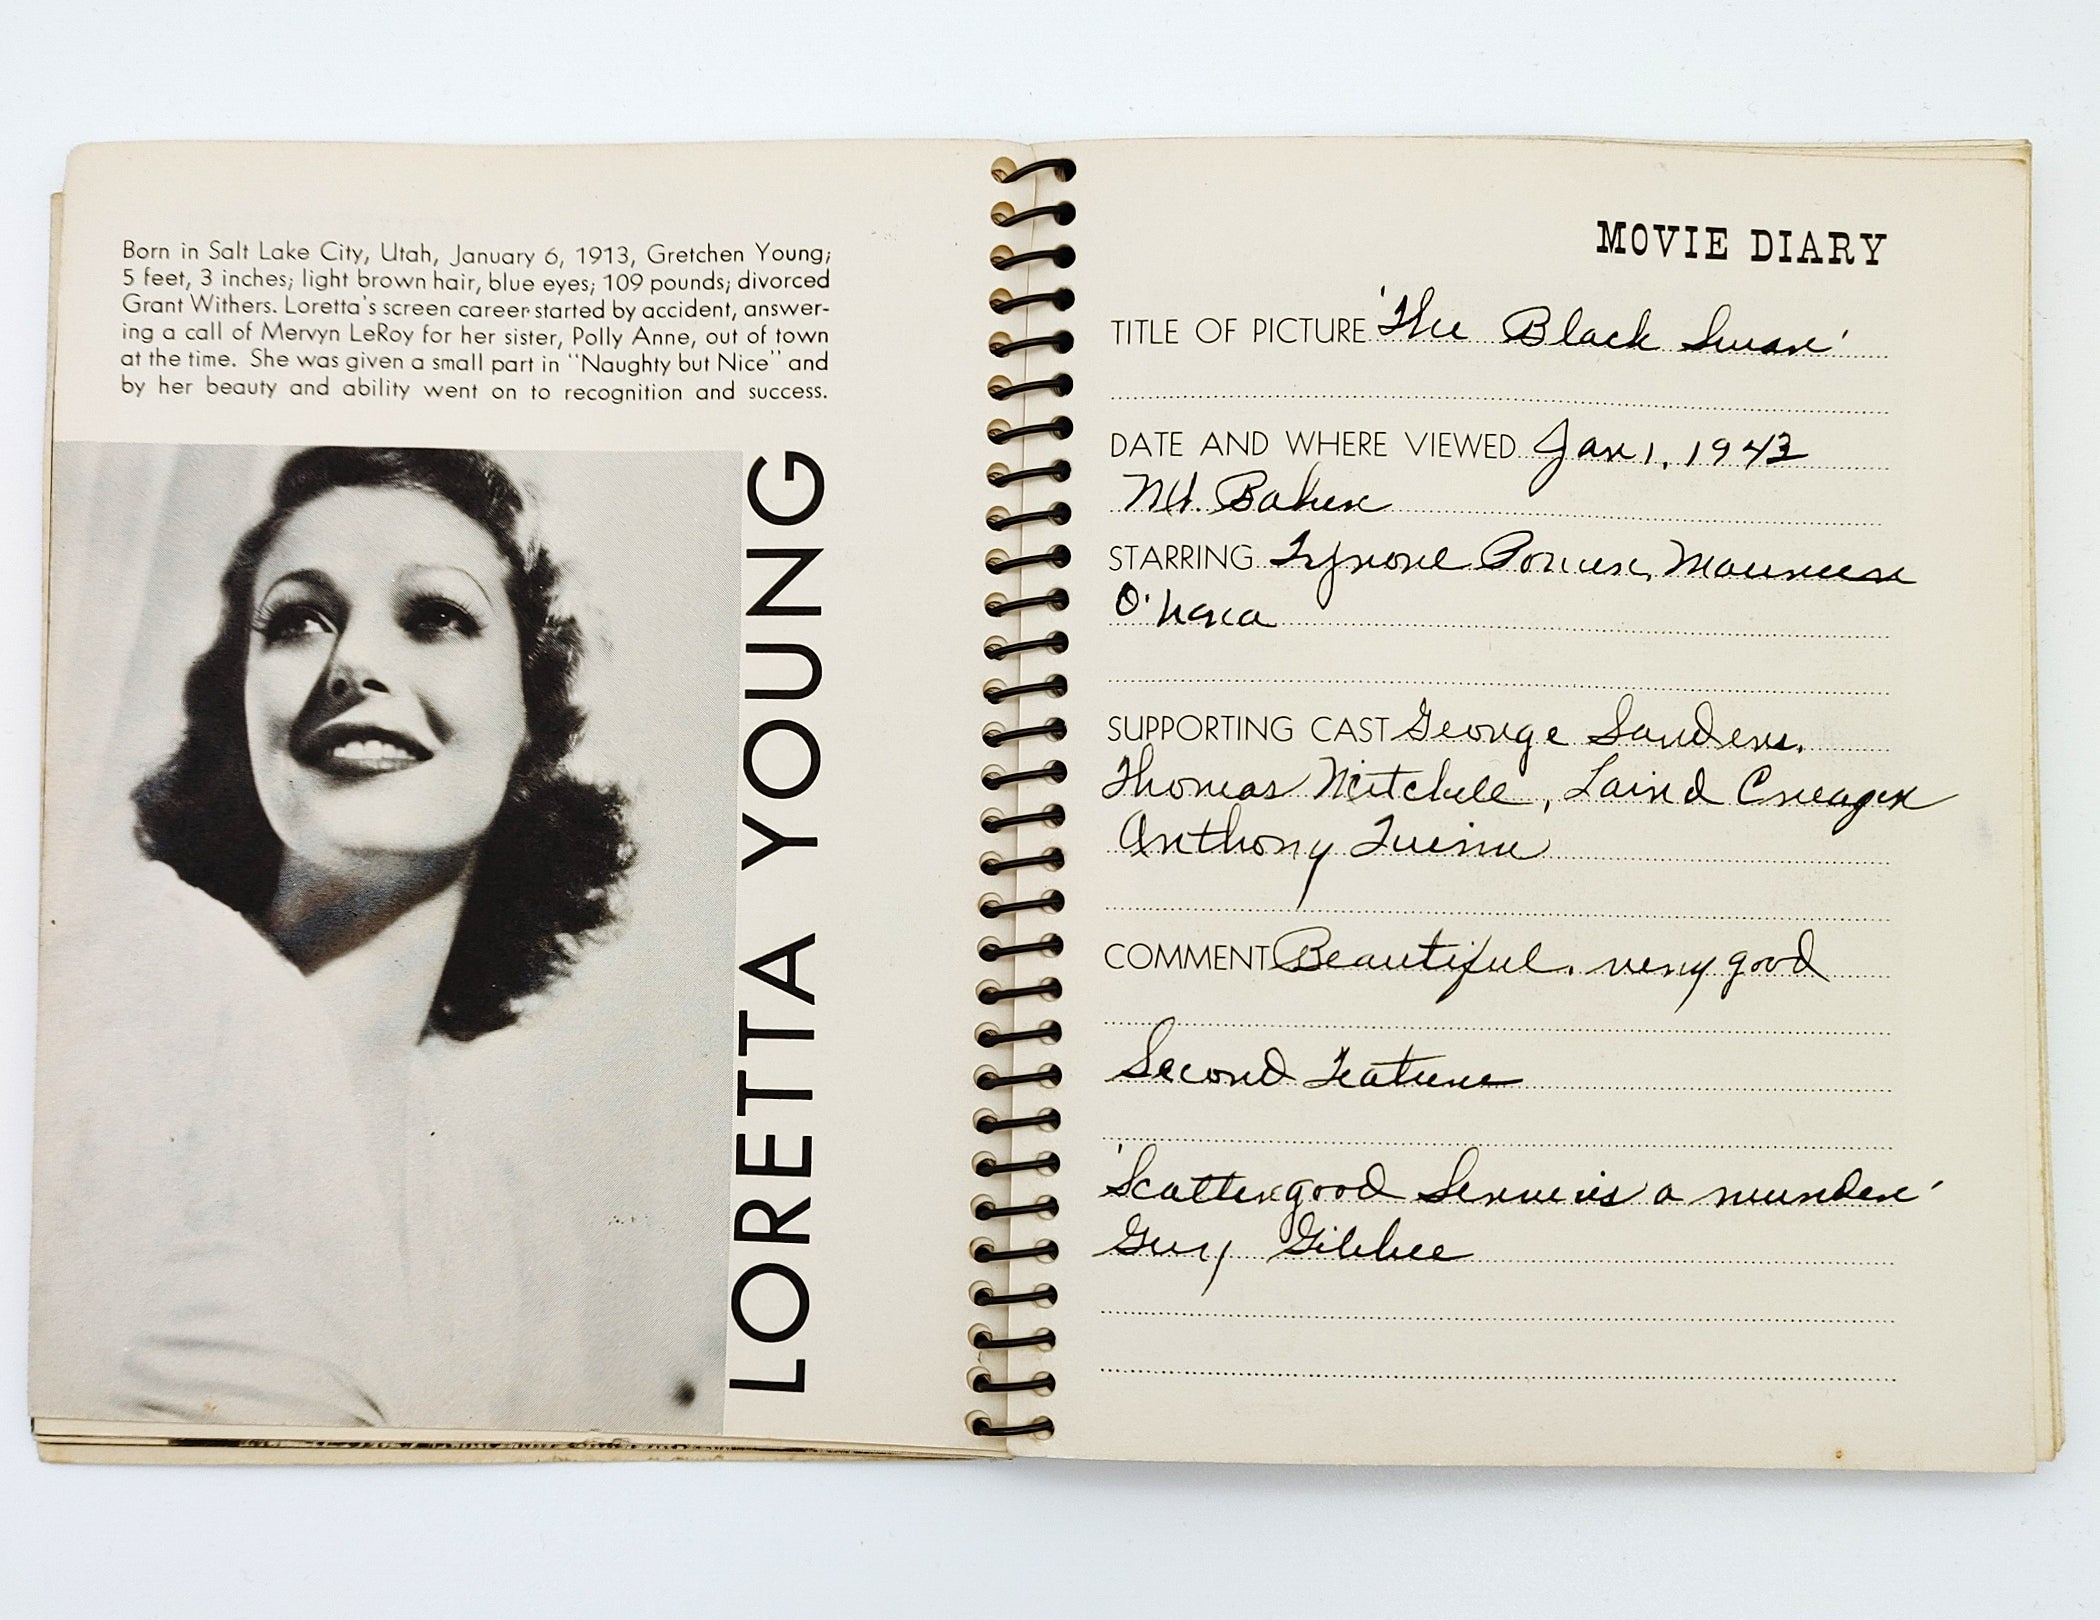 Born in Salt Lake City, Utah, January 6, 1913, Gretchen Young;
5 feet, 3 inches; light brown hair, blue eyes; 109 pounds; divorced
Grant Withers. Loretta's screen career started by accident, answer-
ing a call of Mervyn LeRoy for her sister, Polly Anne, out of town
at the time. She was given a small part in "Naughty but Nice" and
by her beauty and ability went on to recognition and success.
LORETTA YOUNG
MOVIE DIARY
TITLE OF PICTURE 'The Black Swan'
DATE AND WHERE VIEWED Jan 1, 1943
Mt. Baker
STARRING Tyrone Power, Maureen
O'hara
SUPPORTING CAST George Sanders,
Thomas Mitchell, Laird Creager
Anthony Quinn
COMMENT Beautiful, very good
Second Feature
'Scattergood Survives a murder'
Guy Kibbee